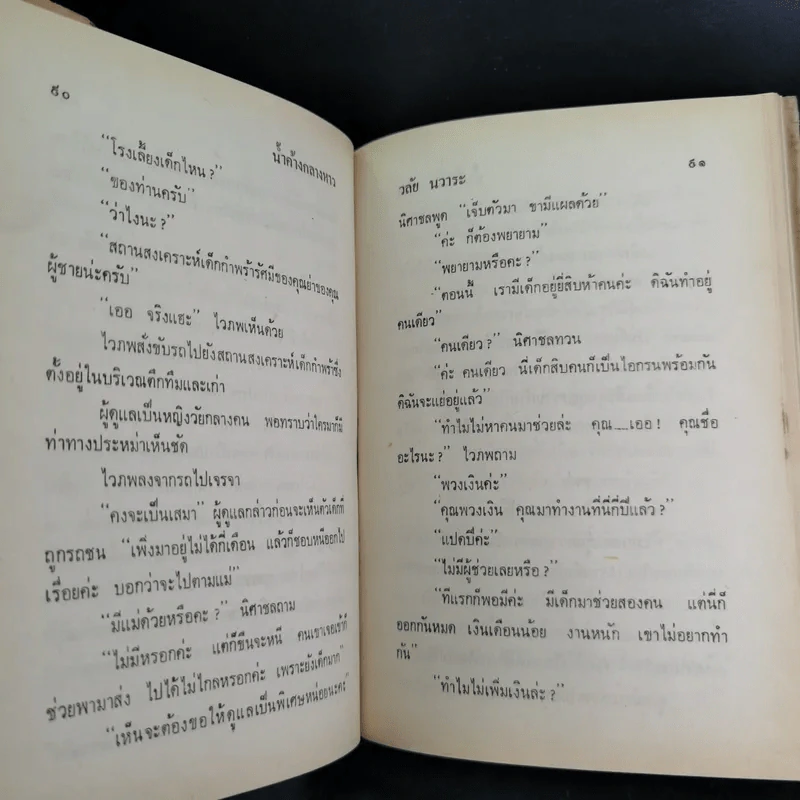 ๕๐
น้ำค้างกลางหาว
“โรงเลี้ยงเด็กไหน?”
“ของท่านครับ”
“ว่าไงนะ?”
“สถานสงเคราะห์เด็กกำพร้ารัศมีของคุณย่าของคุณ
ผู้ชายน่ะครับ”
“เออ จริงแฮะ” ไวภพเห็นด้วย
ไวภพสั่งขับรถไปยังสถานสงเคราะห์เด็กกำพร้าซึ่ง
ตั้งอยู่ในบริเวณตึกทึมและเก่า
ผู้ดูแลเป็นหญิงวัยกลางคน พอทราบว่าใครมาก็มี
ท่าทางประหม่าเห็นชัด
ไวภพลงจากรถไปเจรจา
“คงจะเป็นเสมา” ผู้ดูแลกล่าวก่อนจะเห็นตัวเด็กที่
ถูกรถชน “เพิ่งมาอยู่ไม่ได้กี่เดือน แล้วก็ชอบหนีออกไป
เรื่อยค่ะ บอกว่าจะไปตามแม่”
“มีแม่ด้วยหรือคะ?” นิศาชลถาม
“ไม่มีหรอกค่ะ แต่ก็ขืนจะหนี คนเขาเจอเข้าก็
ช่วยพามาส่ง ไปได้ไม่ไกลหรอกค่ะ เพราะยังเด็กมาก”
“เห็นจะต้องขอให้ดูแลเป็นพิเศษหน่อยนะคะ”
วลัย นวาระ
๕๑
นิศาชลพูด “เจ็บตัวมา ขามีแผลด้วย”
“ค่ะ ก็ต้องพยายาม”
“พยายามหรือคะ?”
“ตอนนี้ เรามีเด็กอยู่ยี่สิบห้าคนค่ะ ดิฉันทำอยู่
คนเดียว”
“คนเดียว?” นิศาชลทวน
“ค่ะ คนเดียว นี่เด็กสิบคนก็เป็นไอกรนพร้อมกัน
ดิฉันจะแย่อยู่แล้ว”
“ทำไมไม่หาคนมาช่วยล่ะ คุณ....เออ! คุณชื่อ
อะไรนะ?” ไวภพถาม
“พวงเงินค่ะ”
“คุณพวงเงิน คุณมาทำงานที่นี่กี่ปีแล้ว?”
“แปดปีค่ะ”
“ไม่มีผู้ช่วยเลยหรือ?”
“ทีแรกก็พอมีค่ะ มีเด็กมาช่วยสองคน แต่นี่ก็
ออกกันหมด เงินเดือนน้อย งานหนัก เขาไม่อยากทำ
กัน”
“ทำไมไม่เพิ่มเงินล่ะ?”